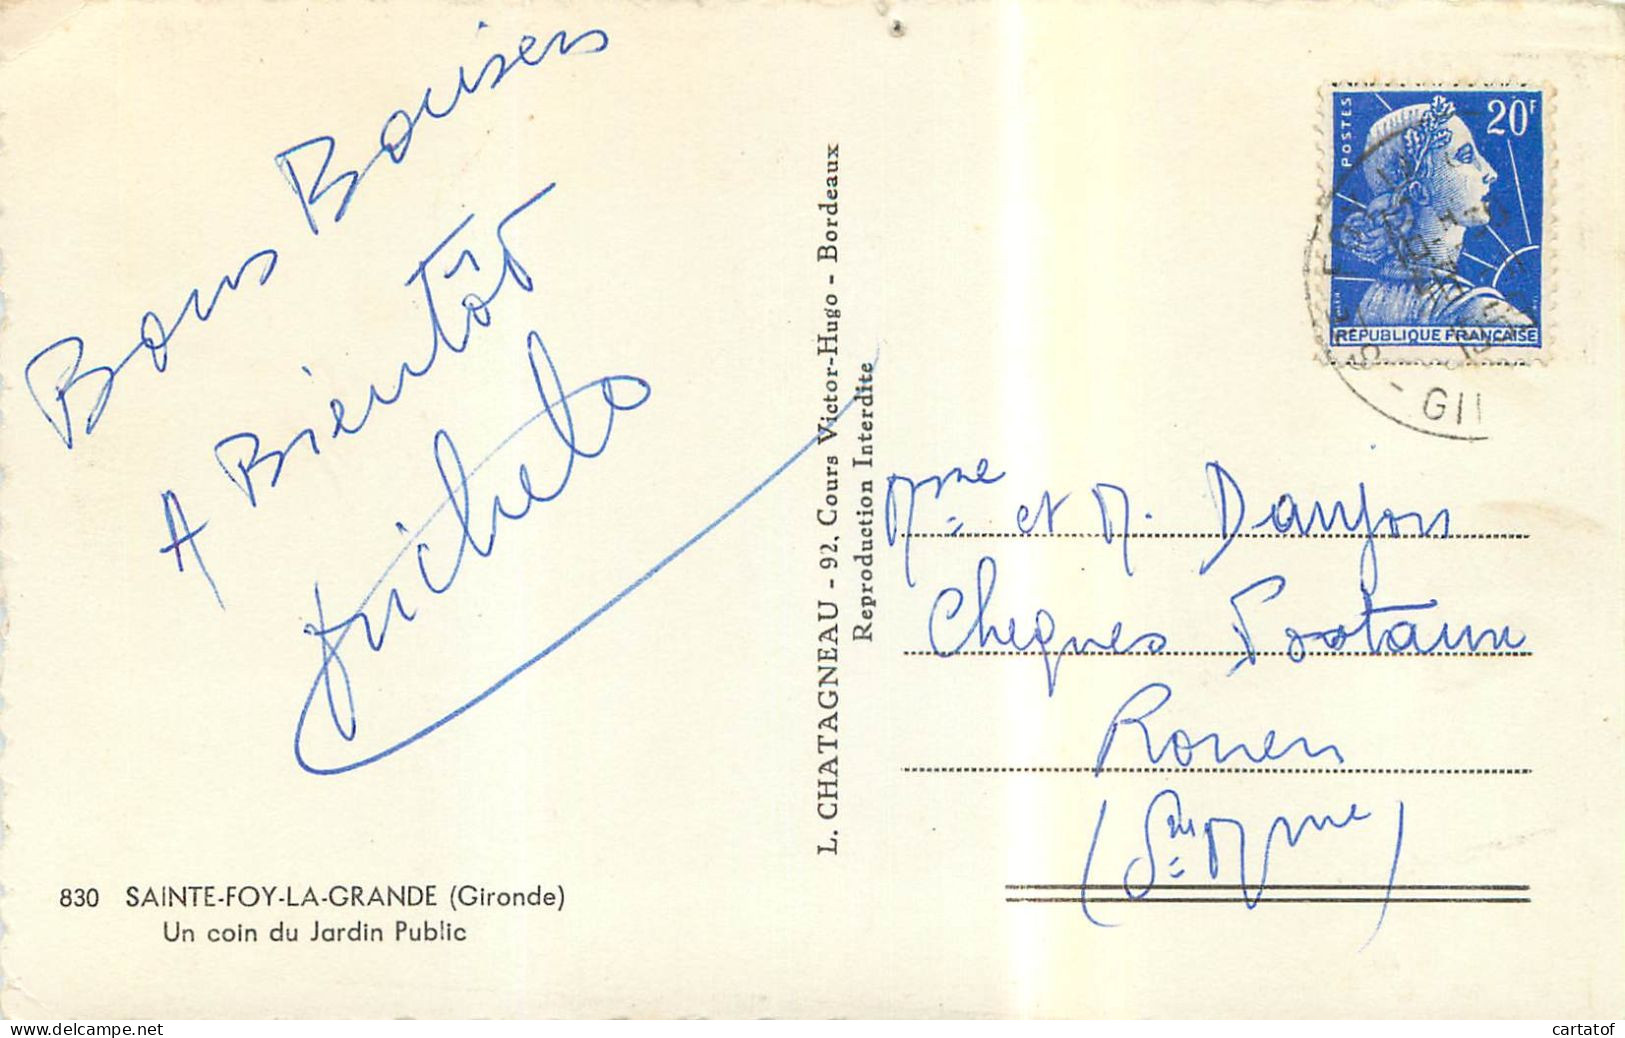 Bons Baisers
A Bientôt
L. CHATAGNEAU - 92, Cours Victor-Hugo - Bordeaux
Reproduction Interdite
POSTES
20F
RÉPUBLIQUE FRANÇAISE
- GI
Mme et M. Danjon
Cheques Postaux
Rouen
(Sne Mme)
830 SAINTE-FOY-LA-GRANDE (Gironde)
Un coin du Jardin Public
www.delcampe.net
cartatof